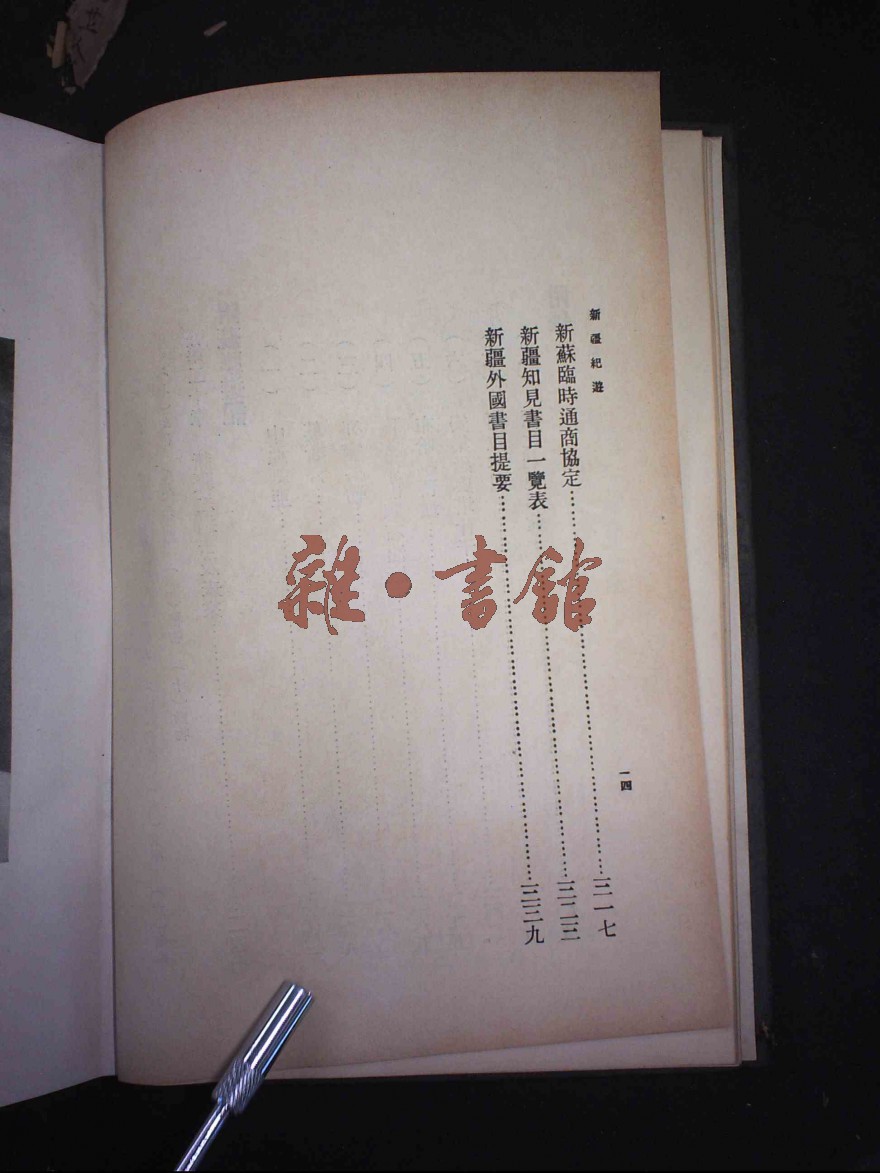 新疆紀遊
一四
新蘇臨時通商協定…………三一七
新疆知見書目一覽表…………三二三
新疆外國書目提要…………三三九
雜·書館